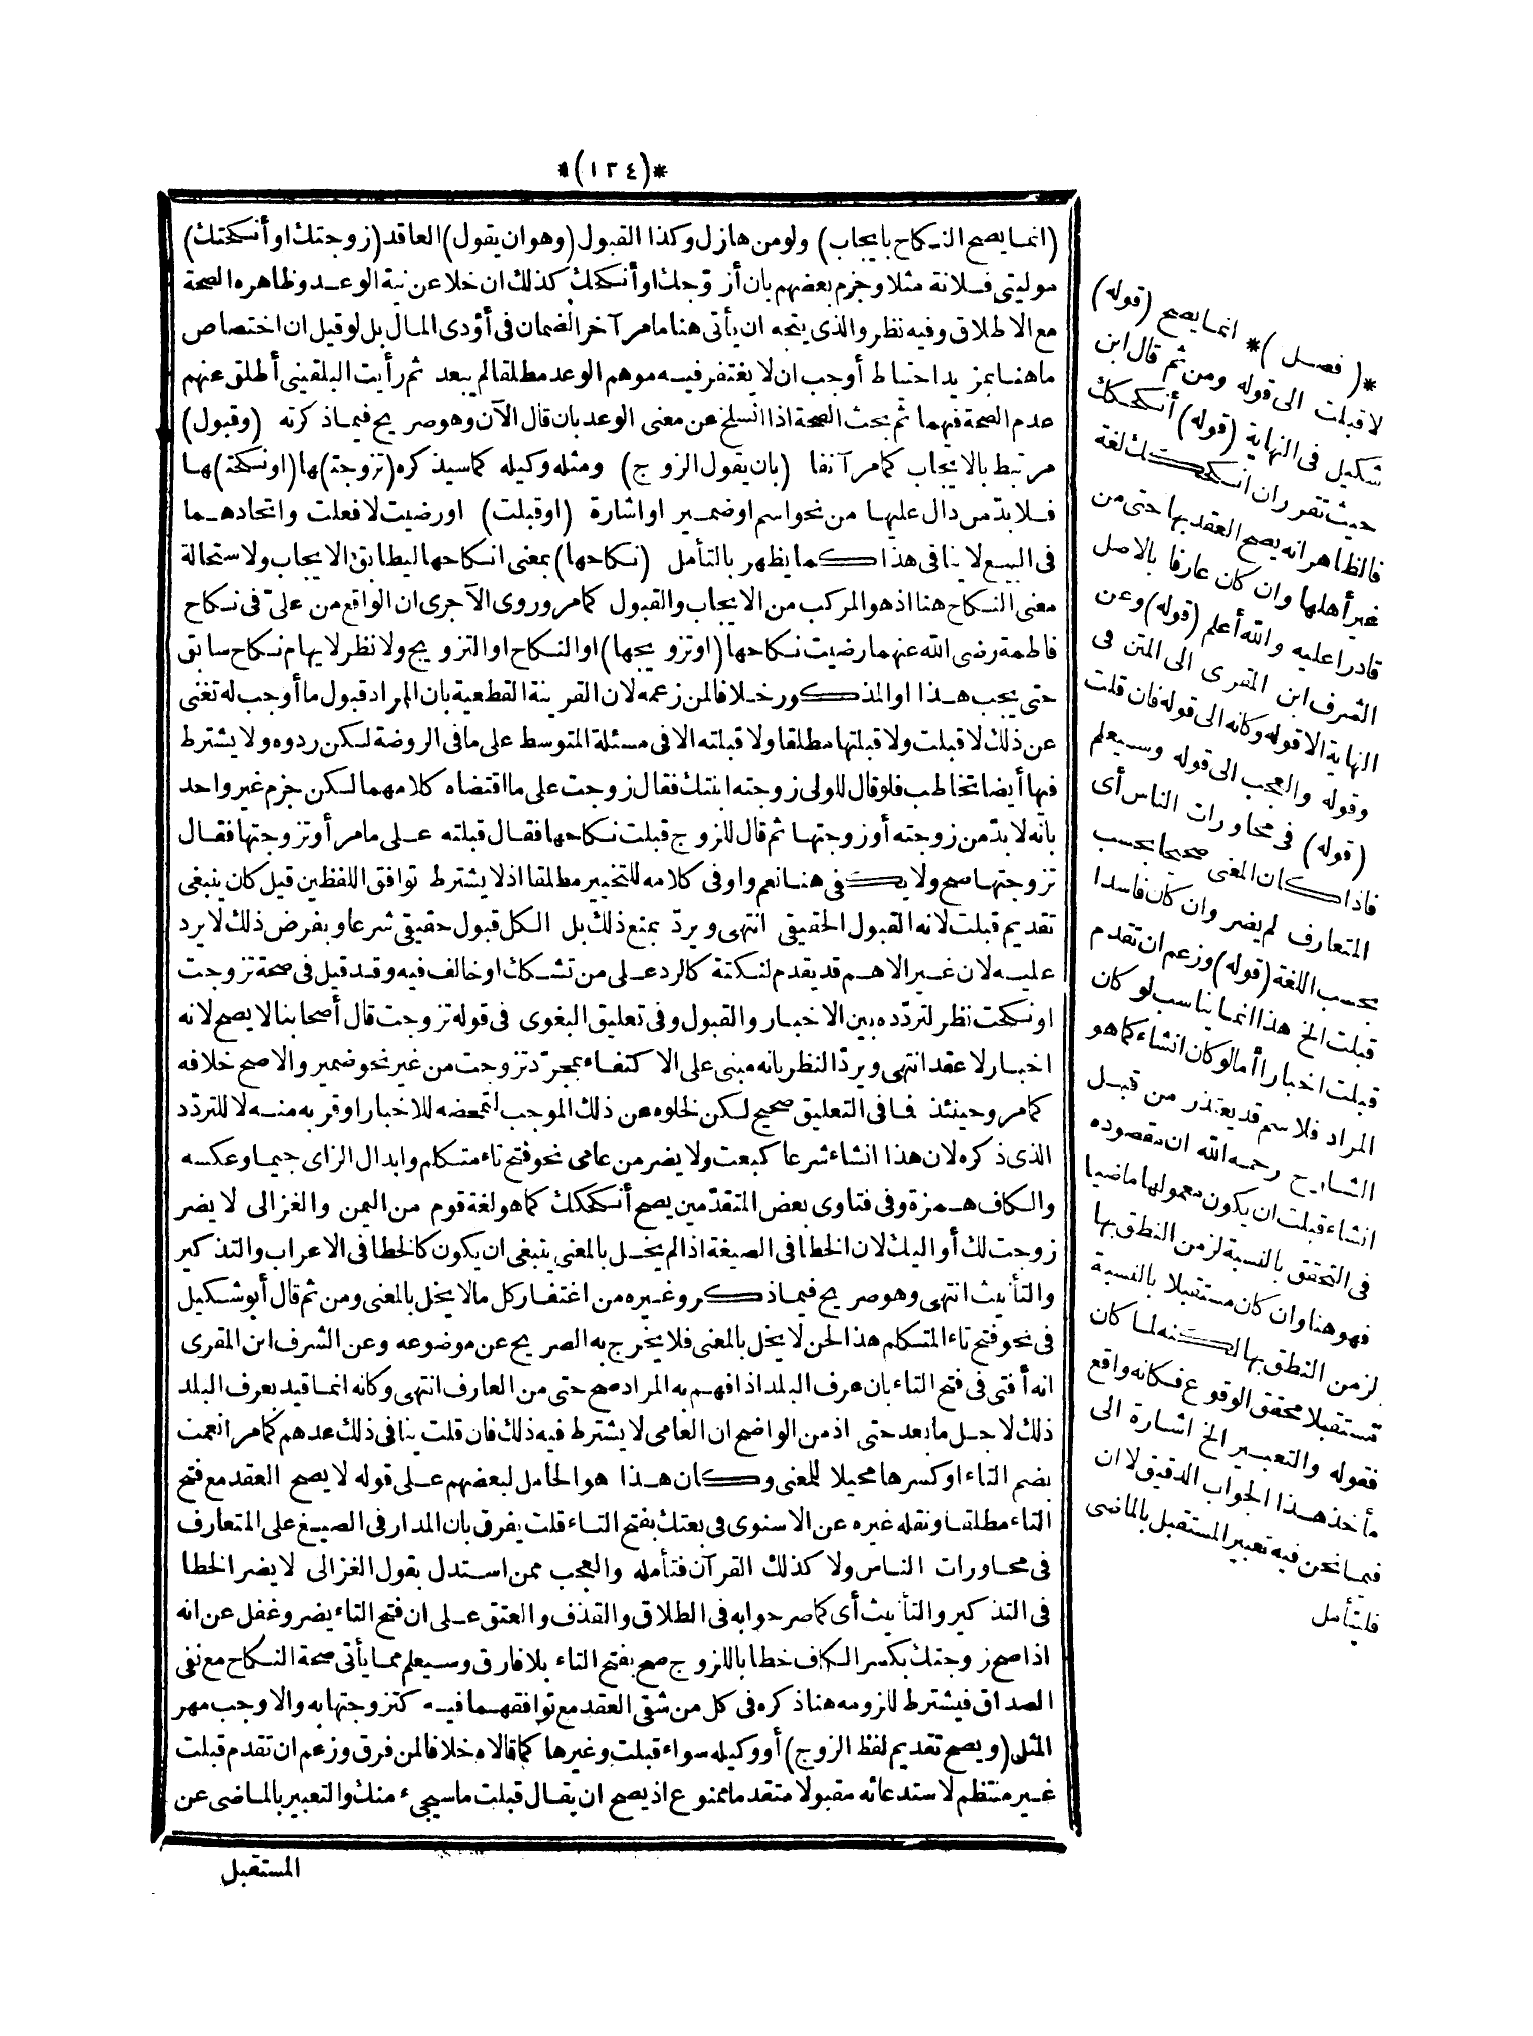 *(١٣٤)*
(انما يصح النكاح بايجاب) ولو من هازل وكذا القبول (وهو ان يقول) العاقد (زوجتك او أنكحتك)
موليتى فلانة مثلا وجزم بعضهم بان أزوّجك او أنكحك كذلك ان خلا عن نية الوعد وظاهره الصحة
مع الاطلاق وفيه نظر والذى يتجه ان يأتى هنا مامر آخر الضمان فى أؤدى المال بل لو قيل ان اختصاص
ما هنا بمزيد احتياط أوجب ان لا يغتفر فيه موهم الوعد مطلقا لم يبعد ثم رأيت البلقينى أطلق عنهم
عدم الصحة فيهما ثم بحث الصحة اذا انسلخ عن معنى الوعد بان قال الآن وهو صريح فيما ذكرته (وقبول)
مرتبط بالايجاب كمامر آنفا (بان يقول الزوج) ومثله وكيله كما سيذكره (تزوجت)ها (او نكحت)ها
فلابدّ من دال عليها من نحو اسم او ضمير او اشارة (او قبلت) او رضيت لا فعلت واتحادهما
فى البيع لا ينافى هذا كما يظهر بالتأمل (نكاحها) بمعنى انكاحها ليطابق الايجاب ولاستحالة
معنى النكاح هنا اذ هو المركب من الايجاب والقبول كمامر وروى الآجرى ان الواقع من علىّ فى نكاح
فاطمة رضى الله عنهما رضيت نكاحها (او تزويجها) او النكاح او التزويج ولا نظر لايهام نكاح سابق
حتى يجب هذا او المذكور خلافا لمن زعمه لان القرينة القطعية بان المراد قبول ما أوجب له تغنى
عن ذلك لا قبلت ولا قبلتها مطلقا ولا قبلته الا فى مسئلة المتوسط على ما فى الروضة لكن ردوه ولا يشترط
فيها أيضا تخاطب فلو قال للولى زوجته ابنتك فقال زوجت على ما اقتضاه كلامهما لكن جزم غير واحد
بانه لا بدّ من زوجته أو زوجتها ثم قال للزوج قبلت نكاحها فقال قبلته على مامر أو تزوجتها فقال
تزوجتها صح ولا يكفى هنا نعم واو فى كلامه للتخيير مطلقا اذ لا يشترط توافق اللفظين قيل كان ينبغى
تقديم قبلت لانه القبول الحقيقى انتهى ويردّ بمنع ذلك بل الكل قبول حقيقى شرعا وبفرض ذلك لا يرد
عليه لان غير الاهم قد يقدم لنكتة كالرد على من تشكك او خالف فيه وقد قيل فى صحة تزوجت
او نكحت نظر لتردّده بين الاخبار والقبول وفى تعليق البغوى فى قوله تزوجت قال أصحابنا لا يصح لانه
اخبار لا عقد انتهى ويردّ النظر بانه مبنى على الاكتفاء بمجرّد تزوجت من غير نحو ضمير والاصح خلافه
كمامر وحينئذ فما فى التعليق صحيح لكن لخلوه عن ذلك الموجب لتمحضه للاخبار او قربه منه لا للتردّد
الذى ذكره لان هذا انشاء شرعا كبعت ولا يضر من عامى نحو فتح تاء متكلم وابدال الزاى جيما وعكسه
والكاف همزة وفى فتاوى بعض المتقدّمين يصح أنكحكك كما هو لغة قوم من اليمن والغزالى لا يضر
زوجت لك أو اليك لان الخطا فى الصيغة اذا لم يخل بالمعنى ينبغى ان يكون كالخطا فى الاعراب والتذكير
والتأنيث انتهى وهو صريح فيما ذكر وغيره من اغتفار كل ما لا يخل بالمعنى ومن ثم قال أبو شكيل
فى نحو فتح تاء المتكلم هذا لحن لا يخل بالمعنى فلا يخرج به الصريح عن موضوعه وعن الشرف ابن المقرى
انه أفتى فى فتح التاء بان عرف البلد اذا فهم به المراد صح حتى من العارف انتهى وكانه انما قيد بعرف البلد
ذلك لاجل ما بعد حتى اذ من الواضح ان العامى لا يشترط فيه ذلك فان قلت ينافى ذلك عدهم كمامر انعمت
بضم التاء او كسرها محيلا للمعنى وكان هذا هو الحامل لبعضهم على قوله لا يصح العقد مع فتح
التاء مطلقا ونقله غيره عن الاسنوى فى بعتك بفتح التاء قلت يفرق بان المدار فى الصيغ على المتعارف
فى محاورات الناس ولا كذلك القرآن فتأمله والعجب ممن استدل بقول الغزالى لا يضر الخطا
فى التذكير والتأنيث أى كما صرحوا به فى الطلاق والقذف والعتق على ان فتح التاء يضر وغفل عن انه
اذا صح زوجتك بكسر الكاف خطابا للزوج صح بفتح التاء بلا فارق وسيعلم مما يأتى صحة النكاح مع نفى
الصداق فيشترط للزومه هنا ذكره فى كل من شقى العقد مع توافقهما فيه كتزوجتها به والا وجب مهر
المثل (ويصح تقديم لفظ الزوج) أو وكيله سواء قبلت وغيرها كما قالاه خلافا لمن فرق وزعم ان تقدم قبلت
غير منتظم لاستدعائه مقبولا متقدما ممنوع اذ يصح ان يقال قبلت ما سيجىء منك والتعبير بالماضى عن
المستقبل
*(فصل)* انما يصح (قوله)
لا قبلت الى قوله ومن ثم قال ابن
شكيل فى النهاية (قوله) أنكحكك
حيث تقرر ان انكحكك لغة
فالظاهر انه يصح العقد بها حتى من
غير أهلها وان كان عارفا بالاصل
قادرا عليه والله أعلم (قوله) وعن
الشرف ابن المقرى الى المتن فى
النهاية الا قوله وكانه الى قوله فان قلت
وقوله والعجب الى قوله وسيعلم
(قوله) فى محاورات الناس أى
فاذا كان المعنى صحيحا بحسب
المتعارف لم يضر وان كان فاسدا
بحسب اللغة (قوله) وزعم ان تقدم
قبلت الخ هذا انما يناسب لو كان
قبلت اخبارا أما لو كان انشاء كما هو
المراد فلا سم قد يعتذر من قبل
الشارح رحمه الله ان مقصوده
انشاء قبلت ان يكون معمولها ماضيا
فى التحقق بالنسبة لزمن النطق بها
فهو هنا وان كان مستقبلا بالنسبة
لزمن النطق بها لكنه لما كان
مستقبلا محقق الوقوع فكانه واقع
فقوله والتعبير الخ اشارة الى
مأخذ هذا الجواب الدقيق لا ان
فيما نحن فيه تعبير المستقبل بالماضى
فليتأمل